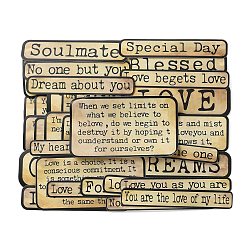 Soulmate
Special Day
No one but you
Blessed
Dream about you
Love begets love
LOVE
When we set limits on
what we believe to
be love, do we begin to
destroy it by hoping t
understand or own it
for ourselves?
and mist
love you and
knows it.
My hear
me one
Love is a choice. It is a
conscious commitment. It
is something
REAMS
Love
Fo
Love you as you are
the same th
You are the love of my life